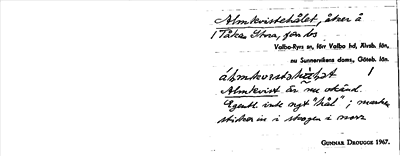 Almkvistehålet, åker å
1 Tåka Stora, fsn los
Valbo-Ryrs sn, förr Valbo hd, Älvsb. län.
nu Sunnervikens doms., Göteb. län.
Almkvist är nu okänd.
Egentl. inte ngt "hål"; marken
sticker in i skogen i norr
GUNNAR DROUGGE 1967.